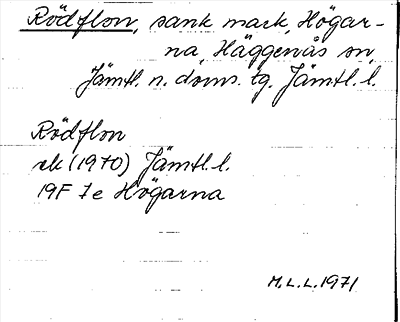 Rödflon, sank mark, Högar-
na, Häggenås sn,
Jämtl. n. doms. tg. Jämtl. l.
Rödflon
ek (1970) Jämtl. l.
19F 7e Högarna
M.L.L. 1971